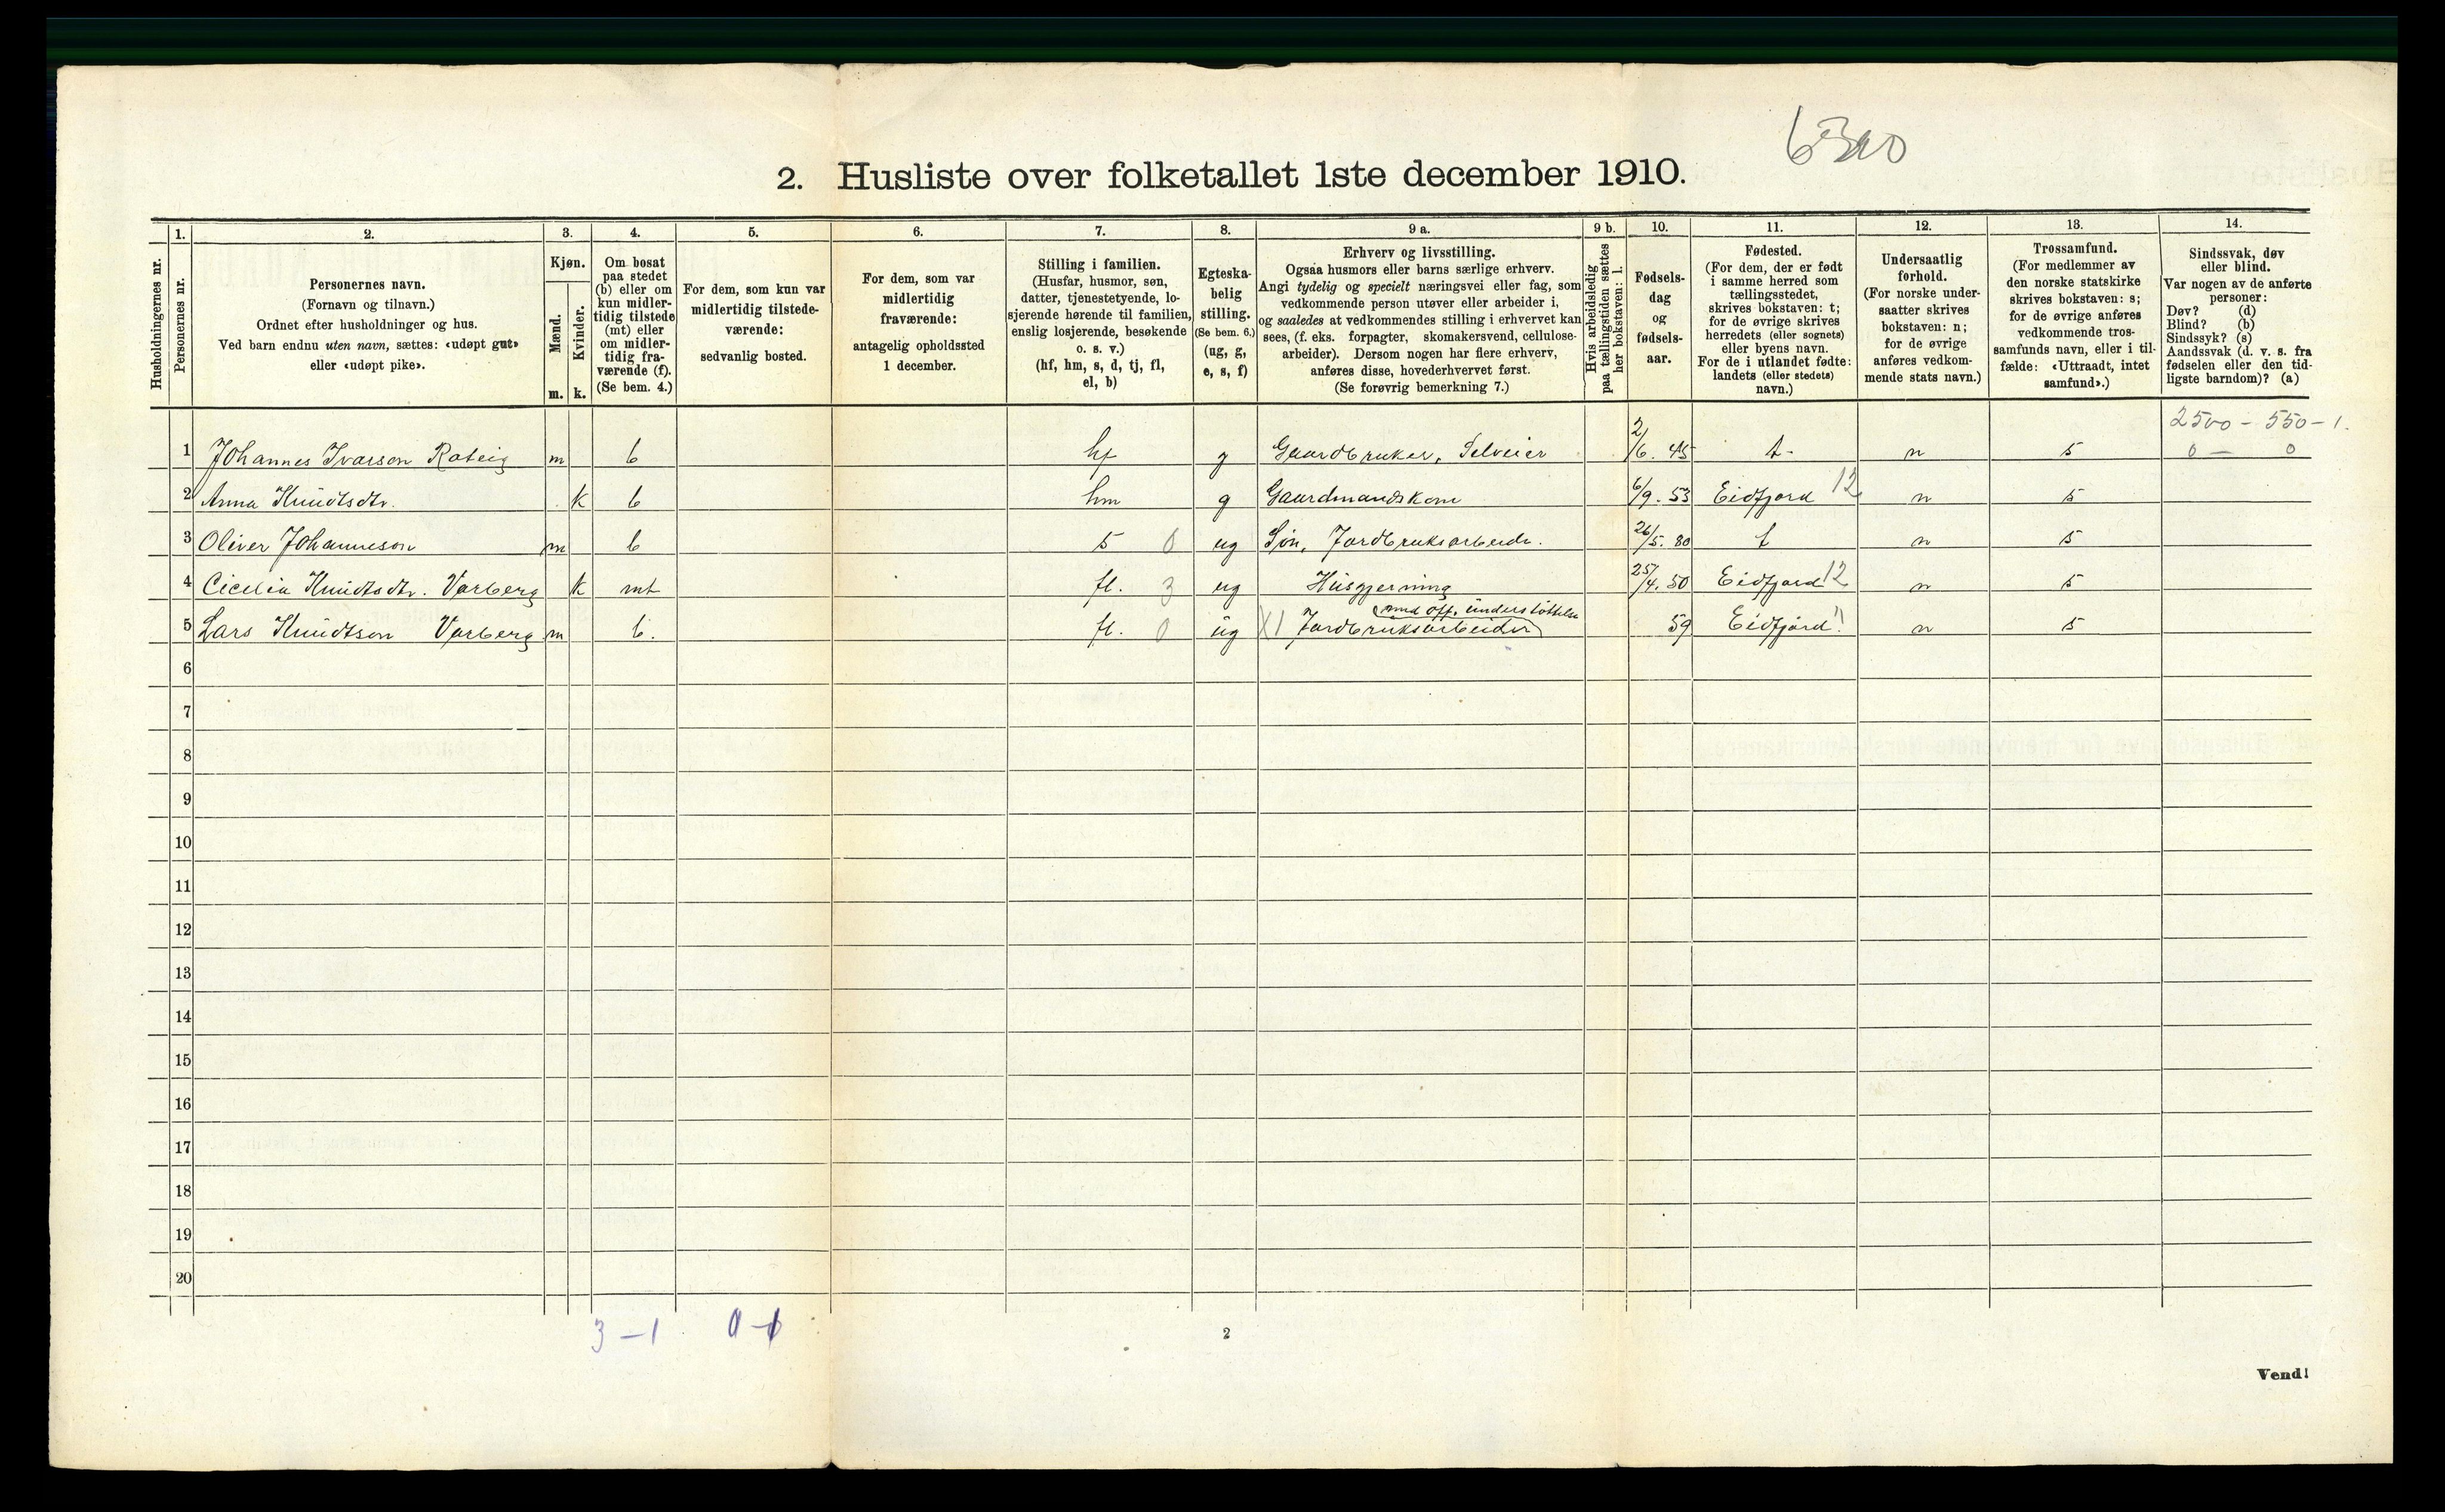 6300
2. Husliste over folketallet 1ste december 1910.
Husholdningernes nr.
1.
Personernes nr.
2.
Personernes navn.
(Fornavn og tilnavn.)
Ordnet efter husholdninger og hus.
Ved barn endnu uten navn, sættes: «udøpt gut»
eller «udøpt pike».
3.
Kjøn.
Mænd.
Kvinder.
m. k.
4.
Om bosat
paa stedet
(b) eller om
kun midler-
tidig tilstede
(mt) eller
om midler-
tidig fra-
værende (f).
(Se bem. 4.)
5.
For dem, som kun var
midlertidig tilstede-
værende:
sedvanlig bosted.
6.
For dem, som var
midlertidig
fraværende:
antagelig opholdssted
1 december.
7.
Stilling i familien.
(Husfar, husmor, søn,
datter, tjenestetyende, lo-
sjerende hørende til familien,
enslig losjerende, besøkende
o. s. v.)
(hf, hm, s, d, tj, fl,
el, b)
8.
Egteska-
belig
stilling.
(Se bem. 6.)
(ug, g,
e, s, f)
9 a.
Erhverv og livsstilling.
Ogsaa husmors eller barns særlige erhverv.
Angi tydelig og specielt næringsvei eller fag, som
vedkommende person utøver eller arbeider i,
og saaledes at vedkommendes stilling i erhvervet kan
sees, (f. eks. forpagter, skomakersvend, cellulose-
arbeider). Dersom nogen har flere erhverv,
anføres disse, hovederhvervet først.
(Se forøvrig bemerkning 7.)
9 b.
Hvis arbeidsledig
paa tællingstiden sættes
her bokstaven: l.
10.
Fødsels-
dag
og
fødsels-
aar.
11.
Fødested.
(For dem, der er født
i samme herred som
tællingsstedet,
skrives bokstaven: t;
for de øvrige skrives
herredets (eller sognets)
eller byens navn.
For de i utlandet fødte:
landets (eller stedets)
navn.)
12.
Undersaatlig
forhold.
(For norske under-
saatter skrives
bokstaven: n;
for de øvrige
anføres vedkom-
mende stats navn.)
13.
Trossamfund.
(For medlemmer av
den norske statskirke
skrives bokstaven: s;
for de øvrige anføres
vedkommende tros-
samfunds navn, eller i til-
fælde: «Uttraadt, intet
samfund».)
14.
Sindssvak, døv
eller blind.
Var nogen av de anførte
personer:
Døv? (d)
Blind? (b)
Sindssyk? (s)
Aandssvak (d. v. s. fra
fødselen eller den tid-
ligste barndom)? (a)
2500 - 550 - 1.
1 Johannes Ivarson Røteig m b hf g Gaardbruker, Selveier 2/6. 45 t. n s 0 — 0
2 Anna Knudtsdtr. k b hm g Gaardmandskone 6/9. 53 Eidfjord 12 n s
3 Oliver Johanneson m b s 0 ug Søn, Jordbruksarbeide. 26/5. 80 t n s
4 Cicelia Knudtsdtr. Varberg k mt fl. 3 ug Husgjerning 25/4. 50 Eidfjord 12 n s
med off. understøttelse
5 Lars Knudtson Varberg m b. fl. 0 ug X1 Jordbruksarbeider 59 Eidfjord 11 n s
6
7
8
9
10
11
12
13
14
15
16
17
18
19
20
3 - 1
2
Vend!